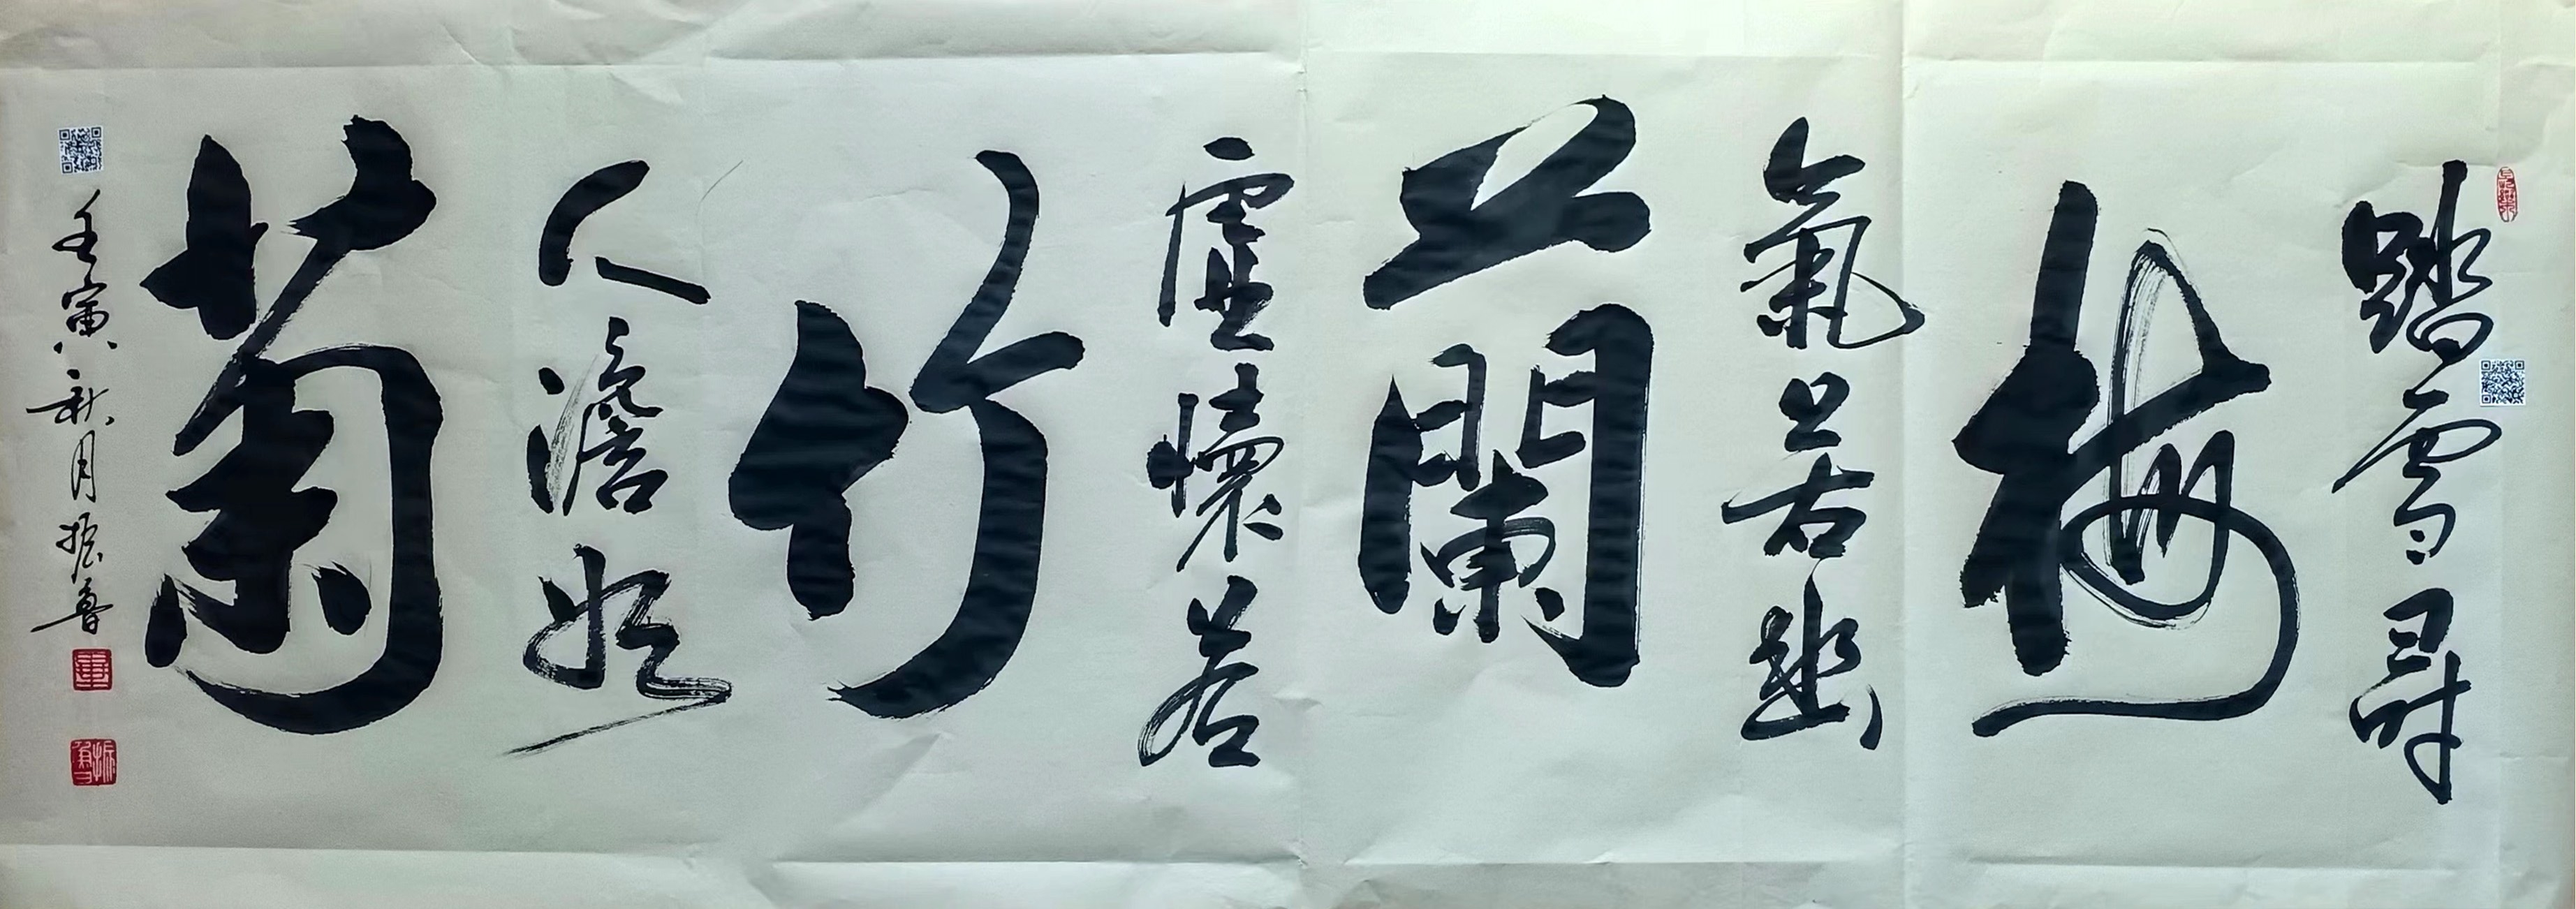 踏雪尋
梅
氣若幽
蘭
虛懷若
竹
人澹如
菊
壬寅秋月振魯